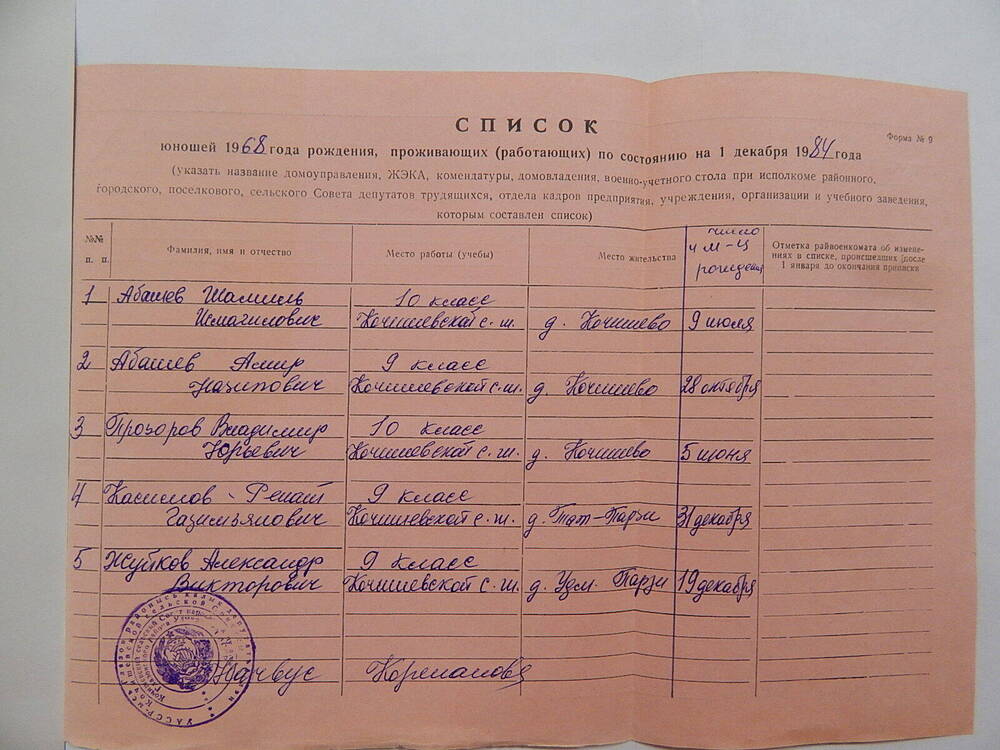 СПИСОК
Форма № 9
юношей 1968 года рождения, проживающих (работающих) по состоянию на 1 декабря 1984 года
(указать название домоуправления, ЖЭКА, комендатуры, домовладения, военно-учетного стола при исполкоме районного,
городского, поселкового, сельского Совета депутатов трудящихся, отдела кадров предприятия, учреждения, организации и учебного заведения,
которым составлен список)
№№ п. п.
Фамилия, имя и отчество
Место работы (учебы)
Место жительства
число и м-ц рождения
Отметка райвоенкомата об измене-
ниях в списке, происшедших (после
1 января до окончания приписки
1 Абашев Шамиль 10 класс
Исмагилович Кочишевской с. ш. д. Кочишево 9 июля
2 Абашев Амир 9 класс
Назипович Кочишевской с. ш. д. Кочишево 28 октября
3 Прозоров Владимир 10 класс
Юрьевич Кочишевской с. ш. д. Кочишево 5 июня
4 Касимов - Ренат 9 класс
Газимзянович Кочишевской с. ш. д. Тат-Парзи 31 декабря
5 Жуйков Александр 9 класс
Викторович Кочишевской с. ш. д. Удм. Парзи 19 декабря
Начвус Корепанова